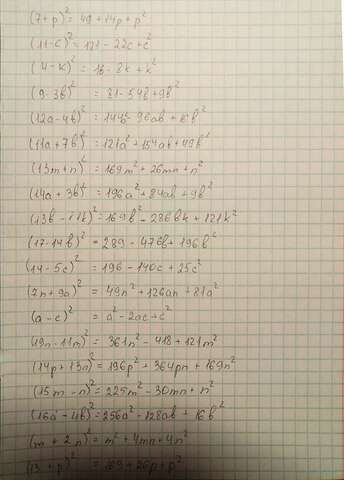 (7+p)² = 49 + 14p + p²
(11-c)² = 121 - 22c + c²
(4-k)² = 16 - 8k + k²
(9-3b)² = 81 - 54b + 9b²
(12a-4b)² = 144a² - 96ab + 16b²
(11a+7b)² = 121a² + 154ab + 49b²
(13m+n)² = 169m² + 26mn + n²
(14a+3b)² = 196a² + 84ab + 9b²
(13b-11k)² = 169b² - 286bk + 121k²
(17-14b)² = 289 - 476b + 196b²
(14-5c)² = 196 - 140c + 25c²
(7n+9a)² = 49n² + 126an + 81a²
(a-c)² = a² - 2ac + c²
(19n-11m)² = 361n² - 418 + 121m²
(14p+13n)² = 196p² + 364pn + 169n²
(15m-n)² = 225m² - 30mn + n²
(16a-4b)² = 256a² - 128ab + 16b²
(m+2n)² = m² + 4mn + 4n²
(13+p)² = 169 + 26p + p²